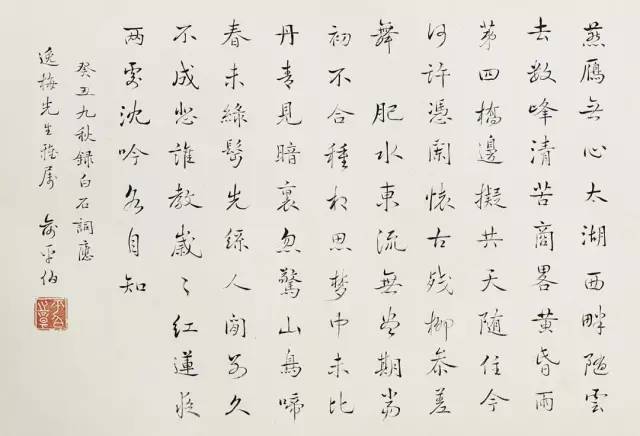 燕雁無心太湖西畔隨雲
去數峰清苦商畧黃昏雨
第四橋邊擬共天隨住今
何許憑闌懷古殘柳參差
舞　肥水東流無盡期當
初不合種相思夢中未比
丹青見暗裏忽驚山鳥啼
春未綠鬢先絲人間別久
不成悲誰教歲〻紅蓮夜
两處沈吟各自知
癸丑九秋録白石詞應
逸梅先生雅屬
俞平伯